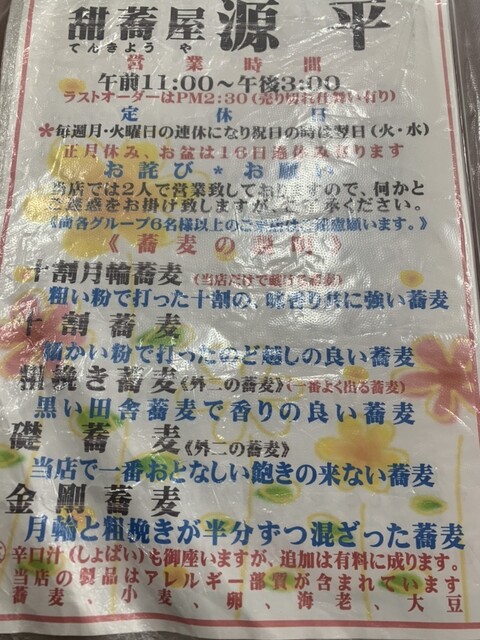 甜蕎屋 源平
てんきょうや
営業時間
午前11:00～午後3:00
ラストオーダーはPM2:30(売り切れ仕舞い有り)
定休日
*毎週月・火曜日の連休になり祝日の時は翌日(火・水)
正月休み、お盆は16日迄休み
お詫び*お願い
当店では2人で営業致しておりますので、何かと
ご迷惑をお掛け致しますが、ご了承ください。
《尚各グループ6名様以上のご来店はご遠慮願います。》
《蕎麦の
十割月輪蕎麦(当店だけで
粗い粉で打った十割の、味香り共に強い蕎麦
十割蕎麦
細かい粉で打ったのど越しの良い蕎麦
粗挽き蕎麦《外二の蕎麦》(一番よく出る蕎麦)
黒い田舎蕎麦で香りの良い蕎麦
礎蕎麦《外二の蕎麦》
当店で一番おとなしい飽きの来ない蕎麦
金剛蕎麦
月輪と粗挽きが半分ずつ混ざった蕎麦
辛口汁(しょぱい)も御座いますが、追加は有料に成ります。
当店の製品はアレルギー部質が含まれています
蕎麦、小麦、卵、海老、大豆